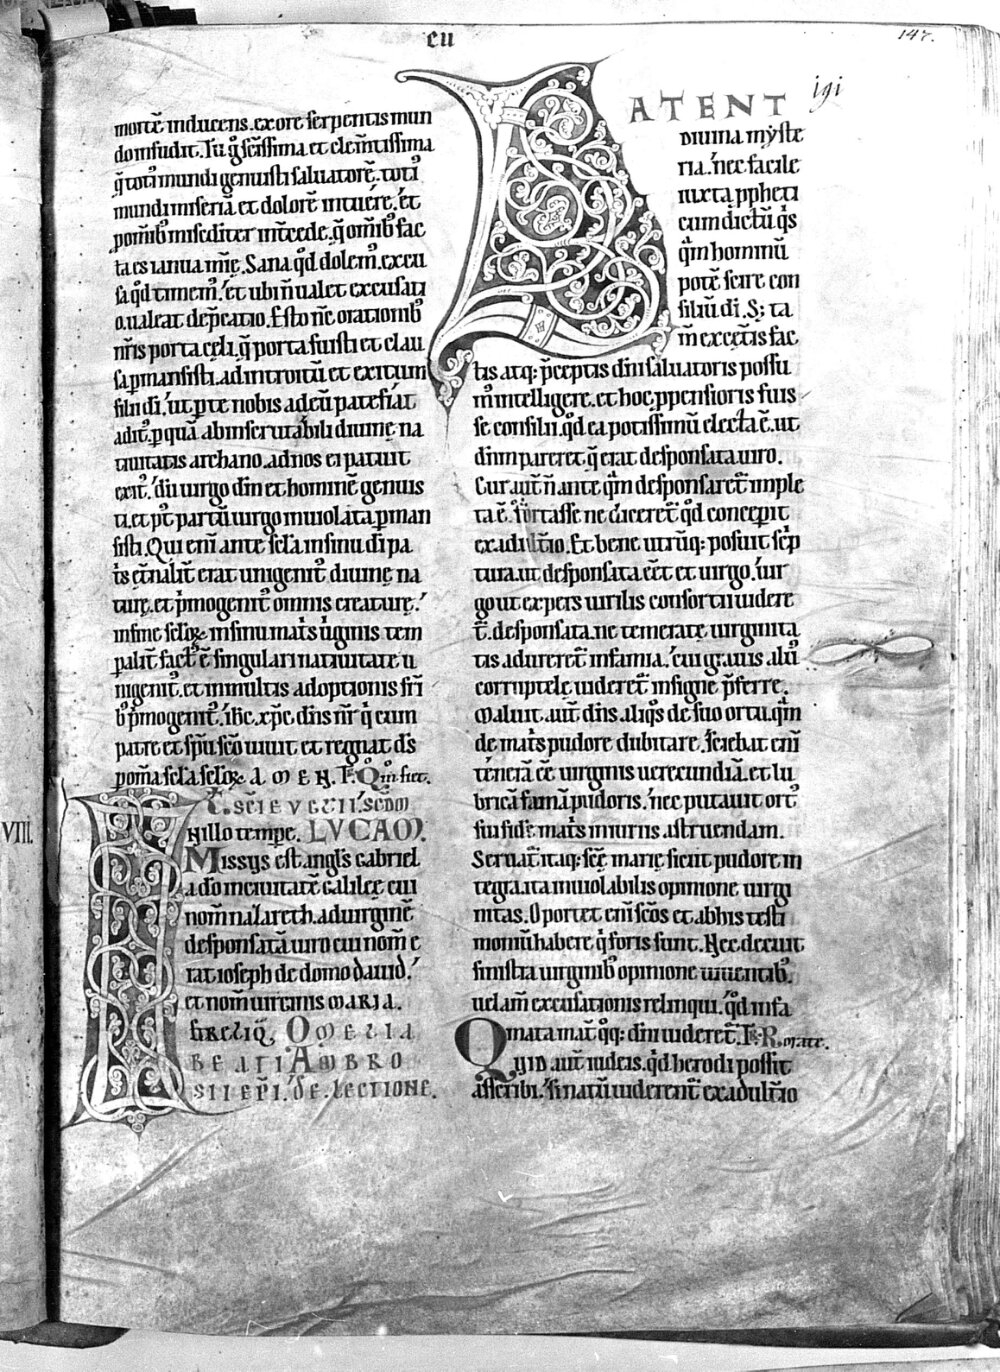 cu
147.
igi
mortē inducens. ex ore serpentis mun
do infudit. Tu q̄ scīssima et clemtissima
q̄ toti mundi genuisti saluatorē. toti᾽
mundi miseriā et dolorē intuere. et
pom̄ib᾽ misediter int̄cede. q̄ om̄ib᾽ fac
ta es ianua inīę. Sana q̄d dolem᾽. excu
sa q̄d timem᾽. et ubi n̄ ualet excusati
o. ualeat dep̄catio. Esto nr̄e orationib᾽
nr̄is porta cęli. q̄ porta fuisti et clau
sa pmansisti. ad introitū et exitum
filii di. ut p te nobis ad eū patefiat
adit᾽. p quā ab inscrutabili diuinę na
tiuitatis archano. ad nos ei patuit
exit᾽. dū uirgo dm̄ et hominē genuis
ti. et p᾽t partū uirgo inuiolata pman
sisti. Qui eni ante scl̄a in sinu di pa
tis
erat unigenit᾽ diuinę na
turę. et p̄mogenit᾽ omnis creaturę.
in fine scl̄oꝝ in sinu mat̄s uginis tem
palit fact᾽ ē singulari natiuitate u
nigenit᾽. et in multis adoptionis fr̄i
b᾽ p̄mogenit᾽. ihc. xp̄c dn̄s nr̄ q̄ cum
patre et spū sc̄o uiuit et regnat d̄s
p om̄a scl̄a scl̄oꝝ. AMEN.
SCI EVGLII. SCDM
VIII.
IN illo tempe. LVCAM.
Missus est angl̄s Gabriel
a do in ciuitatē galileę cui
nom̄ nazareth. ad uirginē
desponsatā uiro cui nom̄ e
rat ioseph de domo dauid.
et nom̄ uirginis MARIA.
OMELIA
BEATI AMBRO
SII EPI. DE LECTIONE.
LATENT
DIUINA mẏste
ria. nec facile
iuxta ppheti
cum dictū q̄s
q̄m hominū
potē scire con
siliū di. S; ta
m̄ ex cet̄is fac
tis atq: p̄ceptis dn̄i saluatoris possu
m᾽ intelligere. et hoc ppensioris fuis
se consilii. q̄d ea potissimū electa ē. ut
dn̄m pareret. q̄ erat desponsata uiro.
Cur aut n̄ ante q̄m desponsaret᾽ imple
ta ē. fortasse ne diceret᾽ q̄d concepit
ex adultio. Et bene utrūq: posuit sc̄p
tura. ut desponsata eēt et uirgo. uir
go ut expers uirilis consortii uidere
t᾽. desponsata. ne temeratę uirginita
tis adureret᾽ infamia. cui grauis alu᾽
corruptelę uideret᾽ insigne p̄ferre.
Maluit aut dn̄s. aliq̄s de suo ortu. q̄m
de mat̄s pudore dubitare. Sciebat eni
tenerā eē uirginis uerecundiā. et lu
bricā famā pudoris. nec putauit ort᾽
sui fidē mat̄s iniuriis astruendam.
Seruat᾽ itaq: scę marię sicut pudore in
tegra. ita inuiolabilis opinione uirgi
nitas. Oportet eni sc̄os et ab his testi
moniū habere q̄ foris sunt. Nec decuit
sinistra uirginib᾽ opinione uiuentib᾽.
uelam̄ excusationis relinqui. q̄d infa
mata mat᾽ q̄q: dn̄i uideret᾽. Rorate.
QUID aut iudeis. q̄d herodi possit
asscribi. si natū uiderent᾽ ex adultio